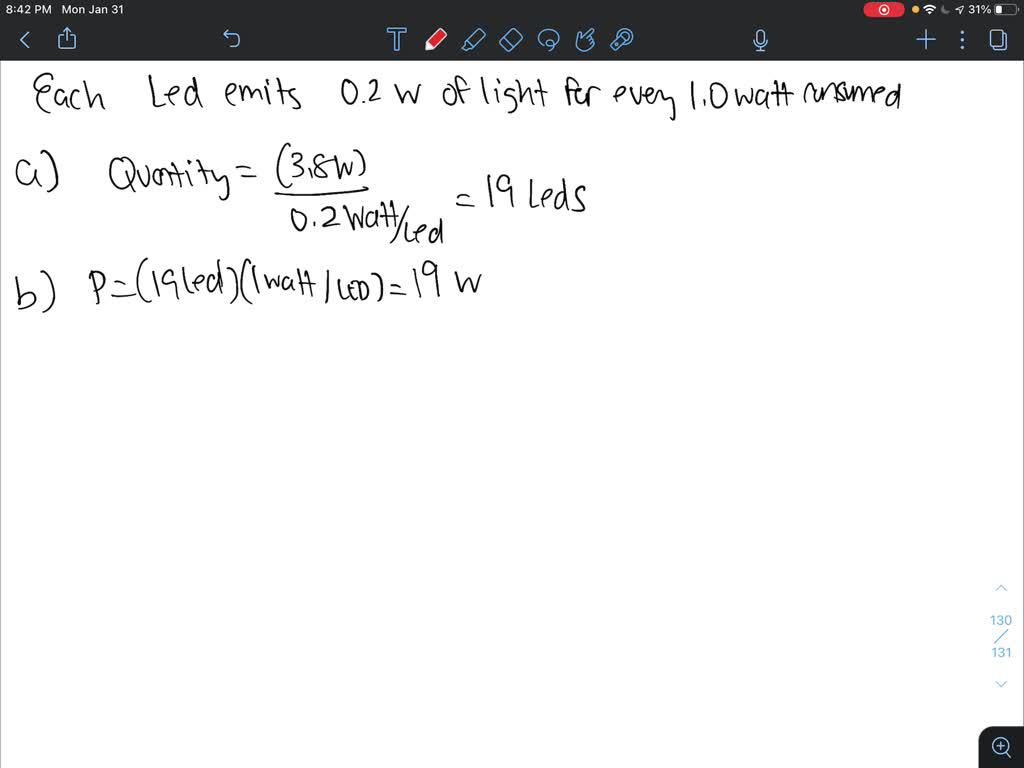 8:42 PM Mon Jan 31
31%
T
Each Led emits 0.2 W of light for every 1.0 watt consumed
a) Quantity = (3.8W) / 0.2 Watt/Led = 19 Leds
b) P=(19 led)(1 watt / LED)= 19 W
130
/
131